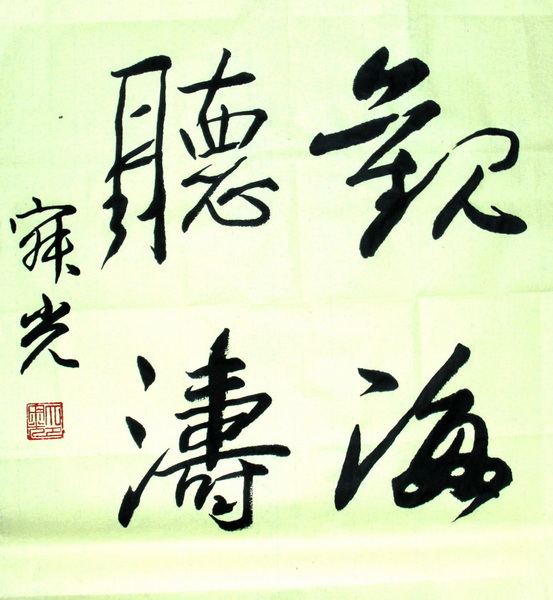 觀海
聽濤
光